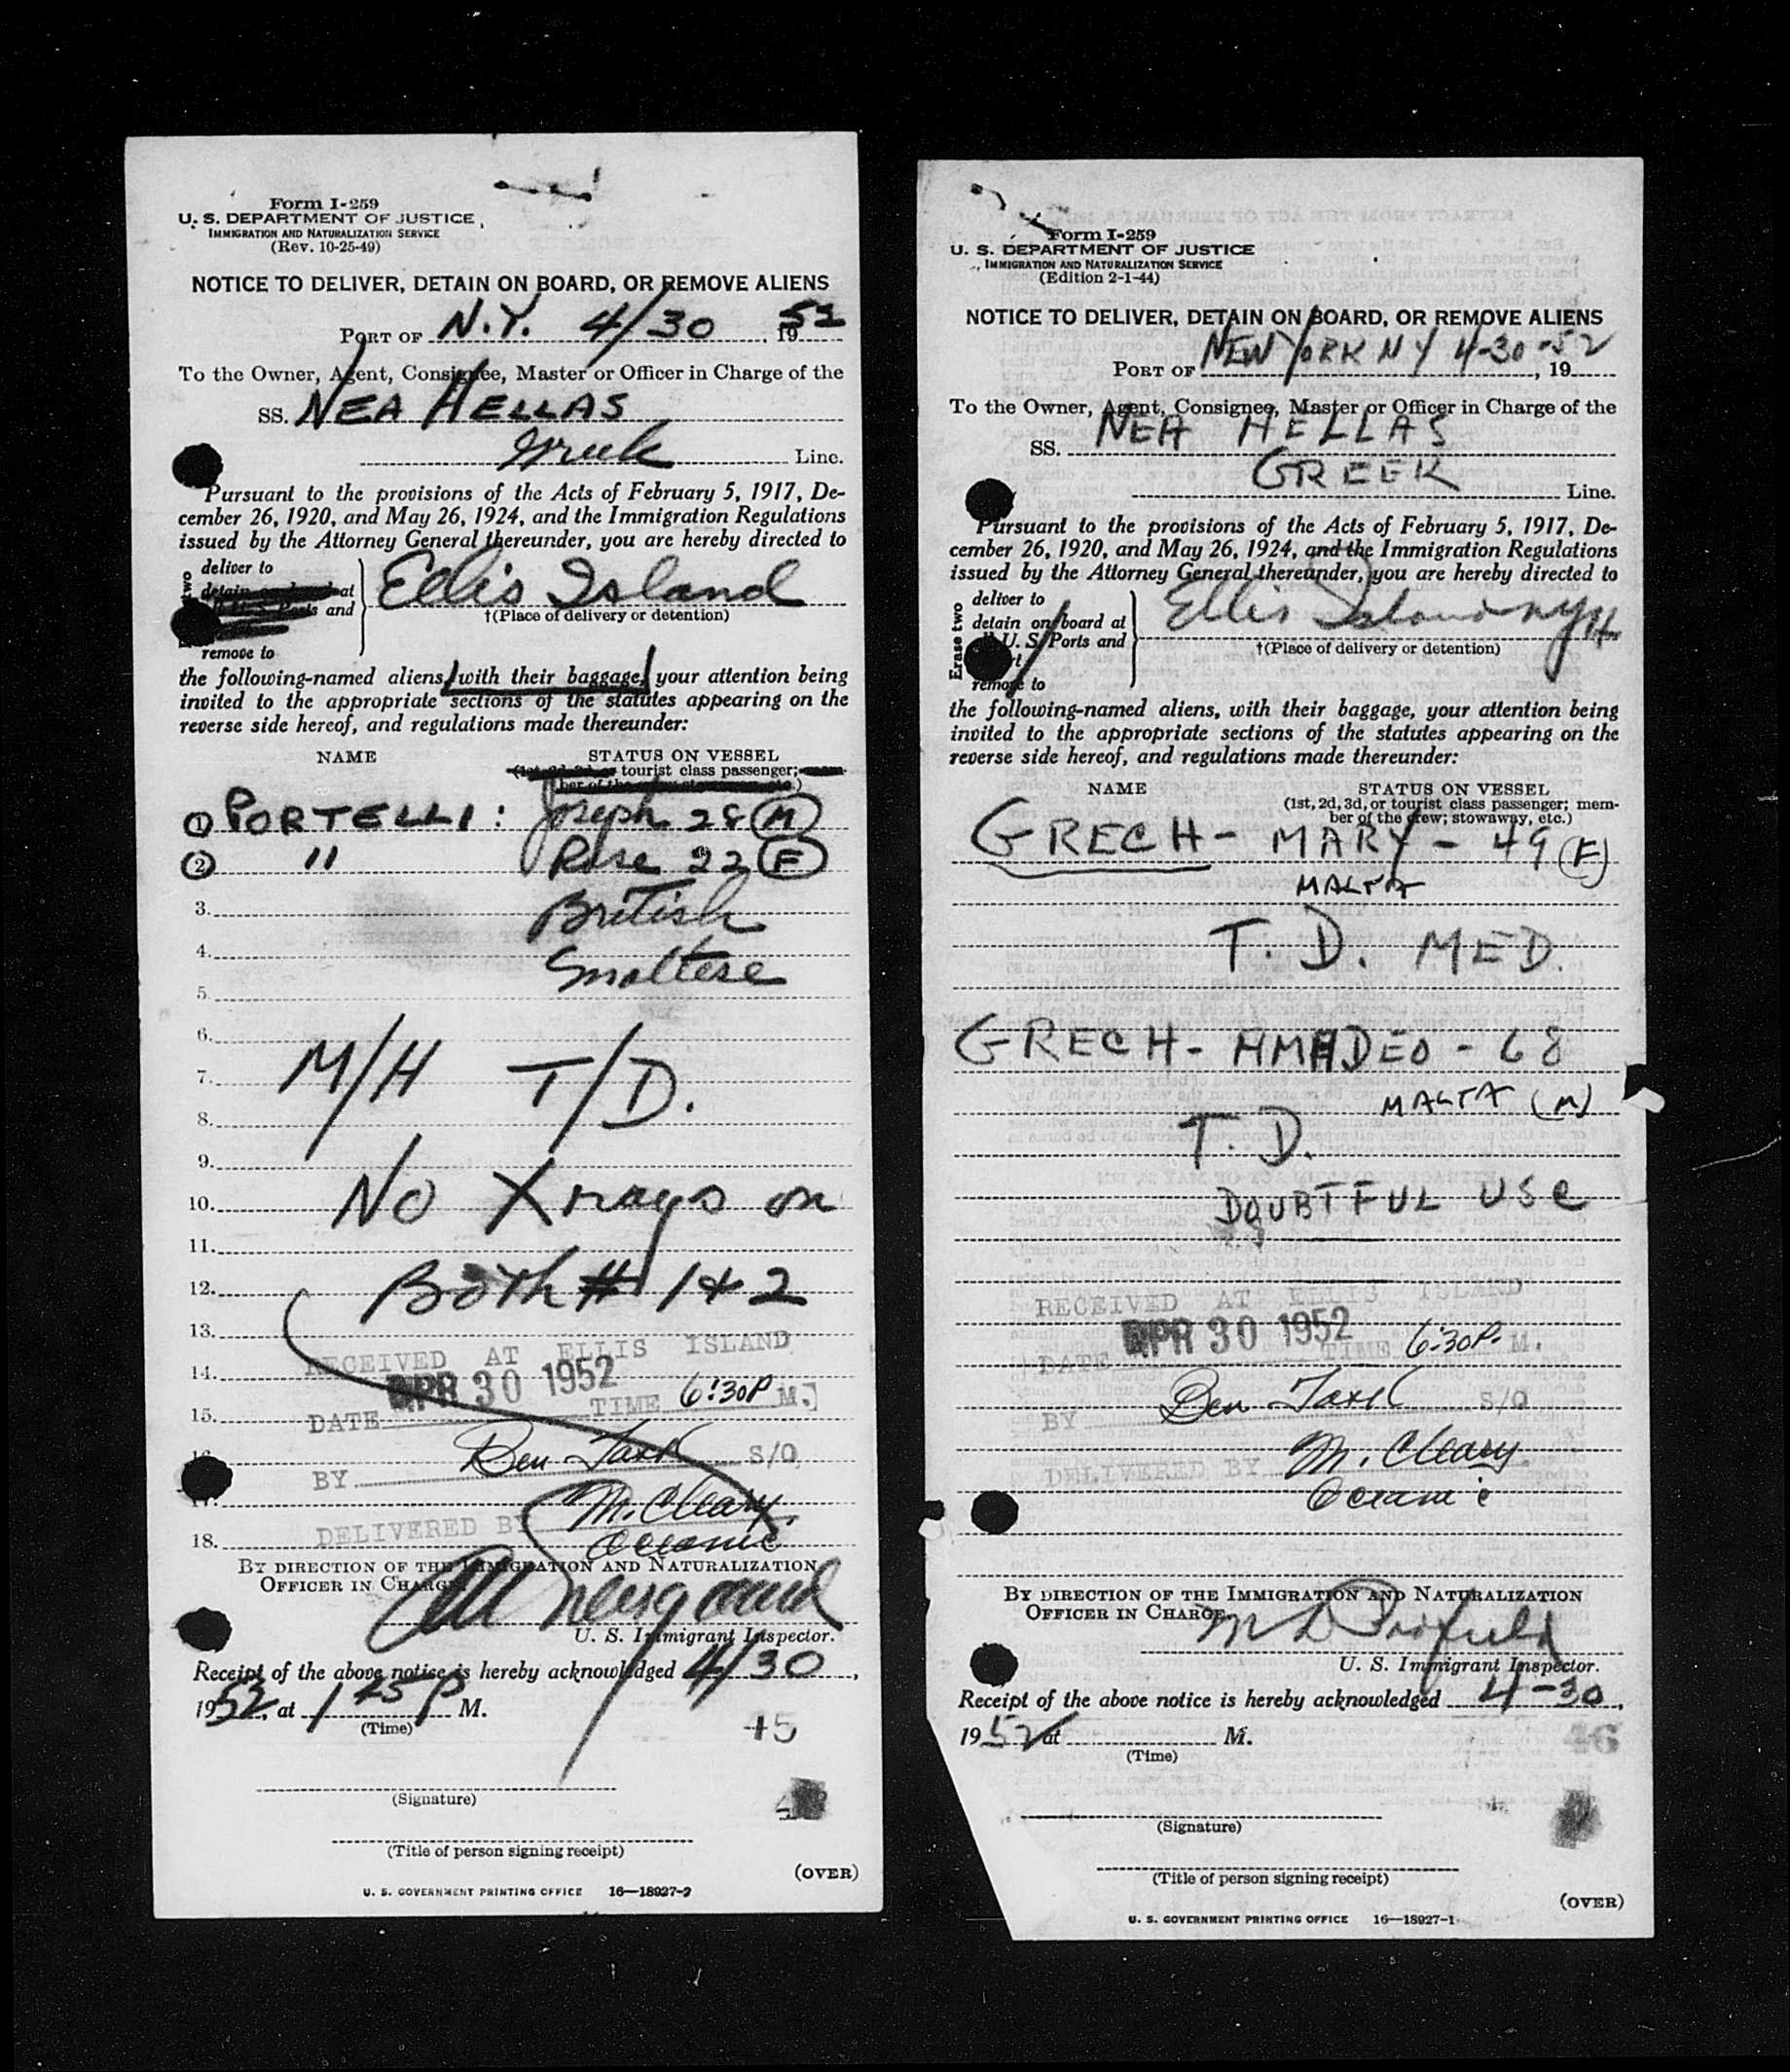 Form I-259
U. S. DEPARTMENT OF JUSTICE
IMMIGRATION AND NATURALIZATION SERVICE
(Rev. 10-25-49)
NOTICE TO DELIVER, DETAIN ON BOARD, OR REMOVE ALIENS
PORT OF N.Y. 4/30, 1952
To the Owner, Agent, Consignee, Master or Officer in Charge of the
SS. NEA HELLAS
Greek Line.
Pursuant to the provisions of the Acts of February 5, 1917, De-
cember 26, 1920, and May 26, 1924, and the Immigration Regulations
issued by the Attorney General thereunder, you are hereby directed to
deliver to
detain on board at
U. S. Ports and
remove to
Ellis Island
†(Place of delivery or detention)
the following-named aliens, with their baggage, your attention being
invited to the appropriate sections of the statutes appearing on the
reverse side hereof, and regulations made thereunder:
NAME
STATUS ON VESSEL
tourist class passenger;
ber of the
1 PORTELLI: Joseph 28 M
2 " Rose 22 F
3. British
4. Maltese
5.
6.
7. M/H T/D.
8.
9.
10. No Xrays on
11.
12. Both # 1 & 2
13.
14. RECEIVED AT ELLIS ISLAND
APR 30 1952
15. DATE TIME 6:30P M.
16. BY Ben S/O
17. M. Cleary
18. DELIVERED BY Oceanic
BY DIRECTION OF THE IMMIGRATION AND NATURALIZATION
OFFICER IN CHARGE
U. S. Immigrant Inspector.
Receipt of the above notice is hereby acknowledged 4/30,
1952, at 1 45 P M.
(Time)
45
(Signature)
(Title of person signing receipt)
(OVER)
U. S. GOVERNMENT PRINTING OFFICE 16—18927-2
Form I-259
U. S. DEPARTMENT OF JUSTICE
IMMIGRATION AND NATURALIZATION SERVICE
(Edition 2-1-44)
NOTICE TO DELIVER, DETAIN ON BOARD, OR REMOVE ALIENS
PORT OF NEW YORK NY 4-30-52, 19
To the Owner, Agent, Consignee, Master or Officer in Charge of the
SS. NEA HELLAS
GREEK Line.
Pursuant to the provisions of the Acts of February 5, 1917, De-
cember 26, 1920, and May 26, 1924, and the Immigration Regulations
issued by the Attorney General thereunder, you are hereby directed to
Erase two
deliver to
detain on board at
U. S. Ports and
remove to
Ellis Island NYH
†(Place of delivery or detention)
the following-named aliens, with their baggage, your attention being
invited to the appropriate sections of the statutes appearing on the
reverse side hereof, and regulations made thereunder:
NAME
STATUS ON VESSEL
(1st, 2d, 3d, or tourist class passenger; mem-
ber of the crew; stowaway, etc.)
GRECH - MARY - 49 (F)
MALTA
T. D. MED.
GRECH - AMADEO - 68
MALTA (M)
T. D.
DOUBTFUL USC
RECEIVED AT ELLIS ISLAND
APR 30 1952
DATE TIME 6:30P. M.
BY Ben S/O
DELIVERED BY M. Cleary
Oceanic
BY DIRECTION OF THE IMMIGRATION AND NATURALIZATION
OFFICER IN CHARGE
U. S. Immigrant Inspector.
Receipt of the above notice is hereby acknowledged 4-30,
1952 at M.
(Time)
46
(Signature)
(Title of person signing receipt)
(OVER)
U. S. GOVERNMENT PRINTING OFFICE 16—18927-1